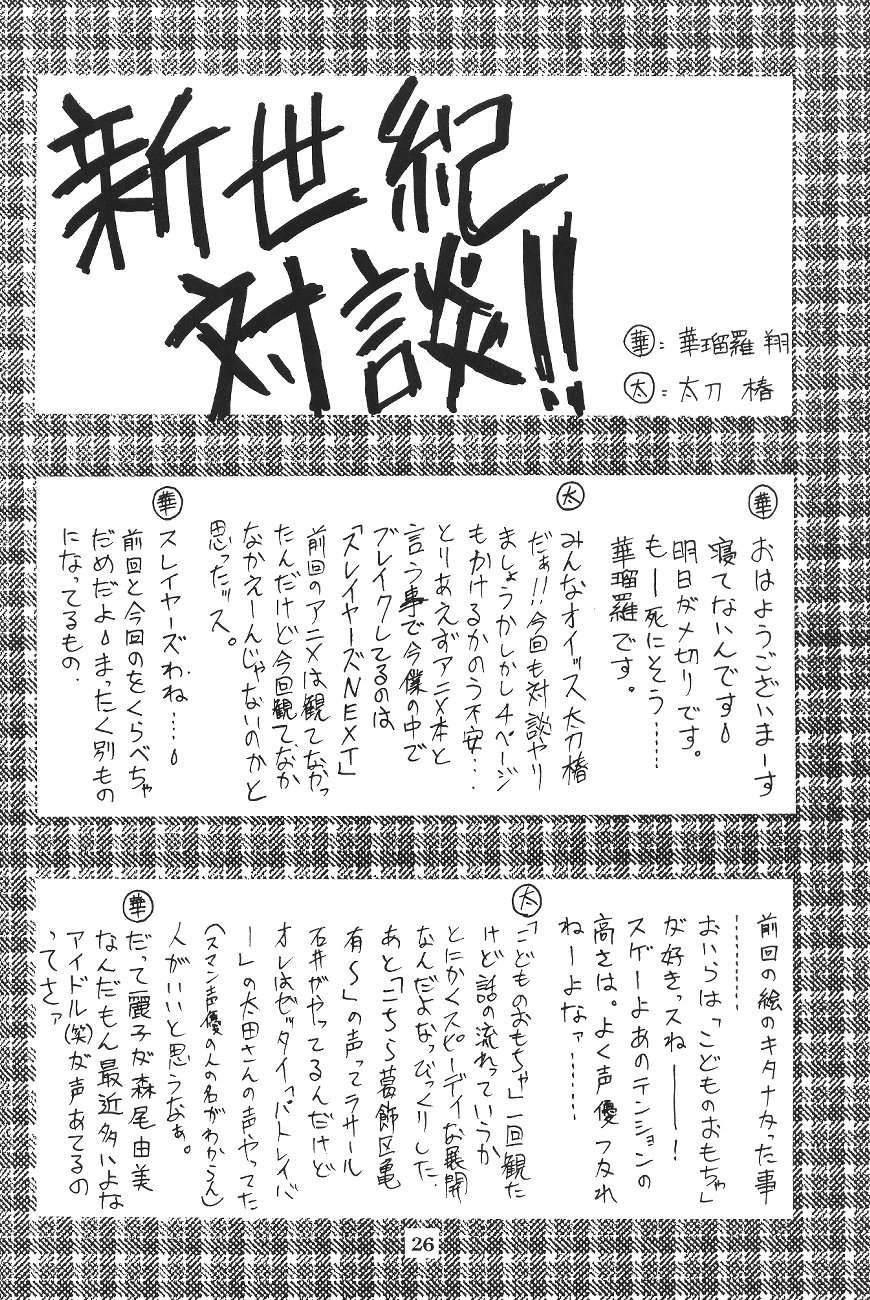 新世紀
対談!!
華：華瑠羅 翔
太：太刀 椿
華
おはようございまーす
寝てないんです
明日ダメ切りです。
もー死にそう……
華瑠羅です。
太
みんなオイッス太刀椿
だぁ!!今回も対談ヤリ
ましょうかしかし4ページ
もかけるかのう不安…
とりあえずアニメ本と
言う事で今僕の中で
ブレイクしてるのは
「スレイヤーズNEXT」
前回のアニメは観てなかっ
たんだけど今回観てなか
なかえーんじゃないのかと
思ったッス。
華
スレイヤーズわね…
前回と今回のをくらべちゃ
だめだよまったく別もの
になってるもの.
前回の絵のキタナかった事
………
おいらは「こどものおもちゃ」
が好きっスね――!
スゲーよあのテンションの
高さは。よく声優つぶれ
ねーよなァ……
太
「こどものおもちゃ」一回観た
けど話の流れっていうか
とにかくスピーディな展開
なんだよなっびっくりした.
あと「こちら葛飾区亀
有〜」の声ってラサール
石井がやってるんだけど
オレはゼッタイ「パトレイバ
ー」の太田さんの声やってた
(スマン声優の人の名がわからん)
人がいいと思うなぁ。
華
だって麗子が森尾由美
なんだもん最近多いよな
アイドル(笑)が声あてるの
ってさァ
26